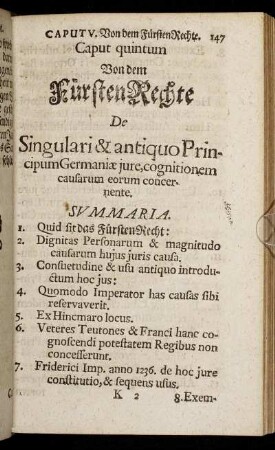 CAPUT V. Von dem Fürsten Rechte. 147
Caput quintum
Von dem
Fürsten Rechte
De
Singulari & antiquo Prin-
cipum Germaniæ jure, cognitionem
causarum eorum concer-
nente.
SVMMARIA.
1. Quid sit das Fürsten Recht:
2. Dignitas Personarum & magnitudo
causarum hujus juris causa.
3. Consuetudine & usu antiquo introdu-
ctum hoc jus:
4. Quomodo Imperator has causas sibi
reservaverit.
5. Ex Hincmaro locus.
6. Veteres Teutones & Franci hanc co-
gnoscendi potestatem Regibus non
concesserunt.
7. Friderici Imp. anno 1236. de hoc jure
constitutio, & sequens usus.
K 2 8. Exem-